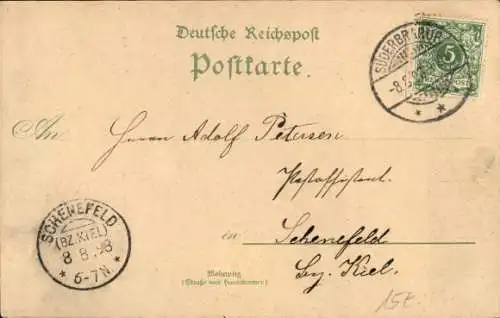 Deutsche Reichspost
Postkarte.
SÜDERBRARUP
-8.8
5
An
Herrn Adolf Petersen
Postassistent
in Schenefeld
Bz. Kiel.
SCHENEFELD
(BZ. KIEL)
8 8 .98
* 6-7N. *
Wohnung
(Straße und Hausnummer)
15€